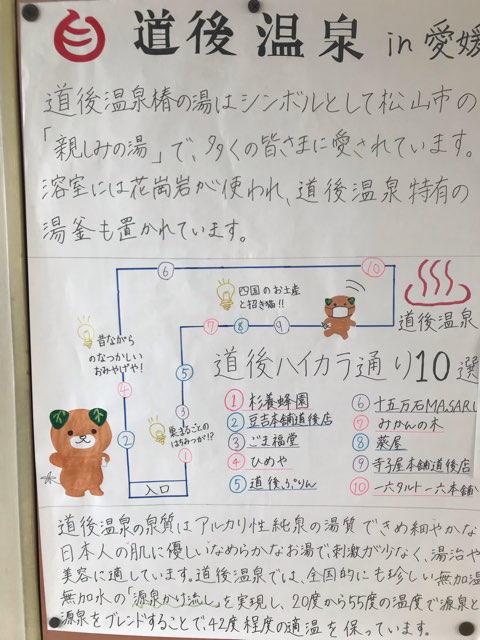 道後温泉 in 愛媛
道後温泉椿の湯はシンボルとして松山市の
「親しみの湯」で、多くの皆さまに愛されています。
浴室には花崗岩が使われ、道後温泉特有の
湯釜も置かれています。
⑥
⑩
四国のお土産
と招き猫!!
⑦ ⑧ ⑨
道後温泉
昔ながら
のなつかしい
おみやげや!
⑤
道後ハイカラ通り10選
④
③
②
巣まるごとの
はちみつが!?
①
入口
①杉養蜂園
②豆吉本舗道後店
③ごま福堂
④ひめや
⑤道後ぷりん
⑥十五万石MASARU
⑦みかんの木
⑧蔡屋
⑨寺子屋本舗道後店
⑩一六タルト一六本舗
道後温泉の泉質はアルカリ性純泉の湯質できめ細やかな
日本人の肌に優しいなめらかなお湯で刺激が少なく、湯治や
美容に適しています。道後温泉では、全国的にも珍しい無加温
無加水の「源泉かけ流し」を実現し、20度から55度の温度で源泉と
源泉をブレンドすることで、42度程度の適温を保っています。